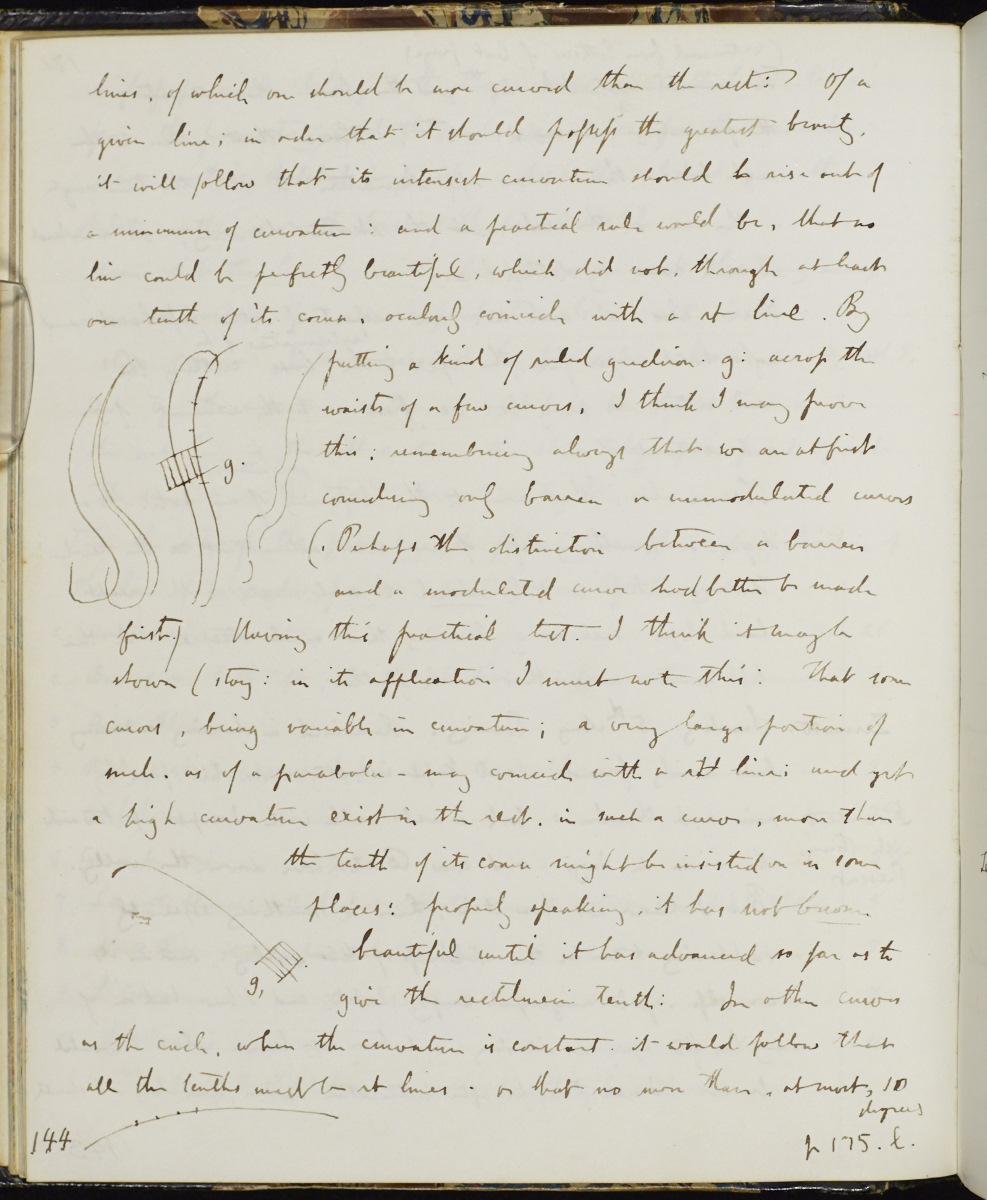 lines, of which one should be more curved than the rest:? Of a
given line; in order that it should possess the greatest beauty,
it will follow that its intensest curvature should be rise out of
a minimum of curvature: and a practical rule would be, that no
line could be perfectly beautiful, which did not, through at least
one tenth of its course, ocularly coincide with a st line. By
putting a kind of ruled gridiron. g: across the
waists of a few curves, I think I may prove
this; remembering always that we are at first
considering only barren or unmodulated curves
(. Perhaps the distinction between a barren
and a modulated curve had better be made
first.) Having this practical test. I think it may be
shown (stay: in its application I must note this: That some
curves, being variable in curvature; a very large portion of
such. as of a parabola - may coincide with a st line; and yet
a high curvature exist in the rest. in such a curve, more than
the tenth of its course might be insisted on in some
places: properly speaking, it has not become
beautiful until it has advanced so far as to
give the rectilinear tenth: In other curves
as the circle, when the curvature is constant. it would follow that
all the tenths must be st lines. or that no more than, at most, 10
degrees
g.
g,
144
p 175. l.